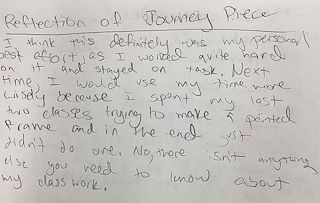 Reflection of Journey Piece
I think this definitely was my personal
best effort, as I worked quite hard
on it and stayed on task. Next
time, I would use my time more
wisely because I spent my last
two classes trying to make a painted
frame and in the end just
didn't do one. No, there isn't anything
else you need to know about
my class work.